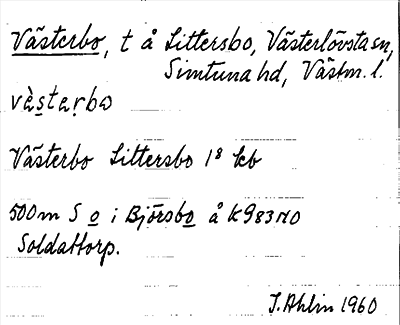 Västerbo, t å Littersbo, Västerlövsta sn,
Simtuna hd, Västm. l.
vèsteṛbω
Västerbo Littersbo 1⁸ kb
500 m S o i Björsbo å K983NO
Soldattorp.
J. Ahlin 1960